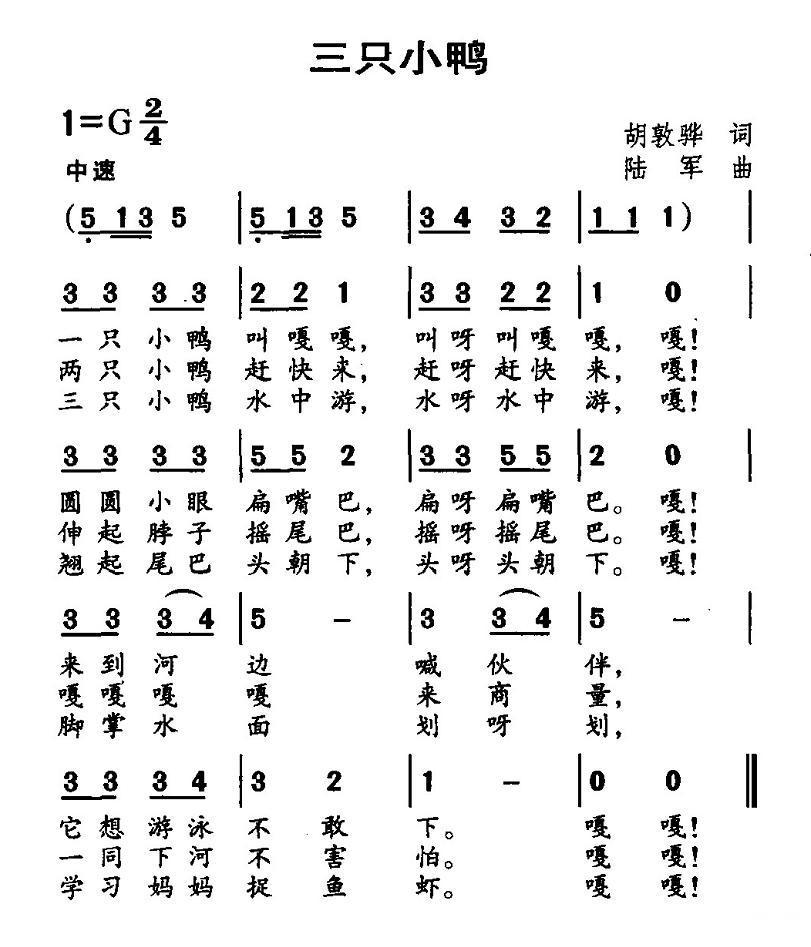 三只小鸭
1=G 2/4
胡敦骅 词
中速
陆 军 曲
(5 13 5 | 5 13 5 | 3 4 3 2 | 1 1 1) |
3 3 3 3 | 2 2 1 | 3 3 2 2 | 1 0 |
一只小鸭 叫嘎嘎, 叫呀叫嘎 嘎, 嘎!
两只小鸭 赶快来, 赶呀赶快 来, 嘎!
三只小鸭 水中游, 水呀水中 游, 嘎!
3 3 3 3 | 5 5 2 | 3 3 5 5 | 2 0 |
圆圆小眼 扁嘴巴, 扁呀扁嘴 巴。嘎!
伸起脖子 摇尾巴, 摇呀摇尾 巴。嘎!
翘起尾巴 头朝下, 头呀头朝 下。嘎!
3 3 3 4 | 5 - | 3 3 4 | 5 - |
来到河 边 喊伙 伴,
嘎嘎嘎 嘎 来商 量,
脚掌水 面 划呀 划,
3 3 3 4 | 3 2 | 1 - | 0 0 ‖
它想游泳 不敢 下。 嘎 嘎!
一同下河 不害 怕。 嘎 嘎!
学习妈妈 捉鱼 虾。 嘎 嘎!